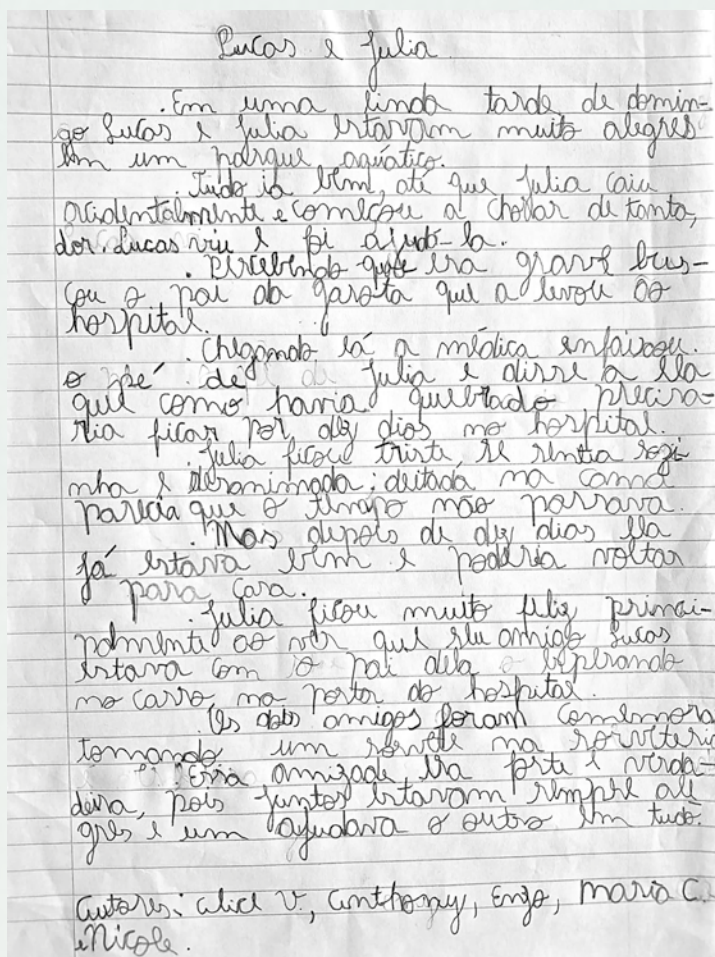 Lucas e Julia
Em uma linda tarde de domin-
go Lucas e Julia estavam muito alegres
em um parque aquático.
Tudo ia bem, até que Julia caiu
acidentalmente e começou a chorar de tanta
dor. Lucas viu e foi ajudá-la.
Percebendo que era grave bus-
cou o pai da garota que a levou ao
hospital.
Chegando lá a médica enfaixou
o pé de Julia e disse a ela
que como havia quebrado precisa-
ria ficar por dez dias no hospital.
Julia ficou triste, se sentia sozi-
nha e desanimada; deitada na cama
parecia que o tempo não passava.
Mas depois de dez dias ela
já estava bem e poderia voltar
para casa.
Julia ficou muito feliz princi-
palmente ao ver que seu amigo Lucas
estava com o pai dela esperando
no carro, na porta do hospital.
Os dois amigos foram comemora
tomando um sorvete na sorveteri
Essa amizade era forte e verda-
deira, pois juntos estavam sempre ale
gres e um ajudava o outro em tudo.
Autores: Alice V., Anthony, Enzo, Maria C.
e Nicole.